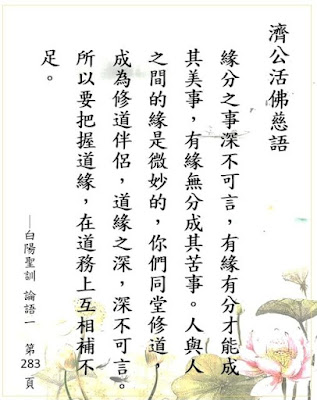 濟公活佛慈語
緣分之事深不可言，有緣有分才能成
其美事，有緣無分成其苦事。人與人
之間的緣是微妙的，你們同堂修道，
成為修道伴侶，道緣之深，深不可言。
所以要把握道緣，在道務上互相補不
足。
—白陽聖訓 論語一 第283頁